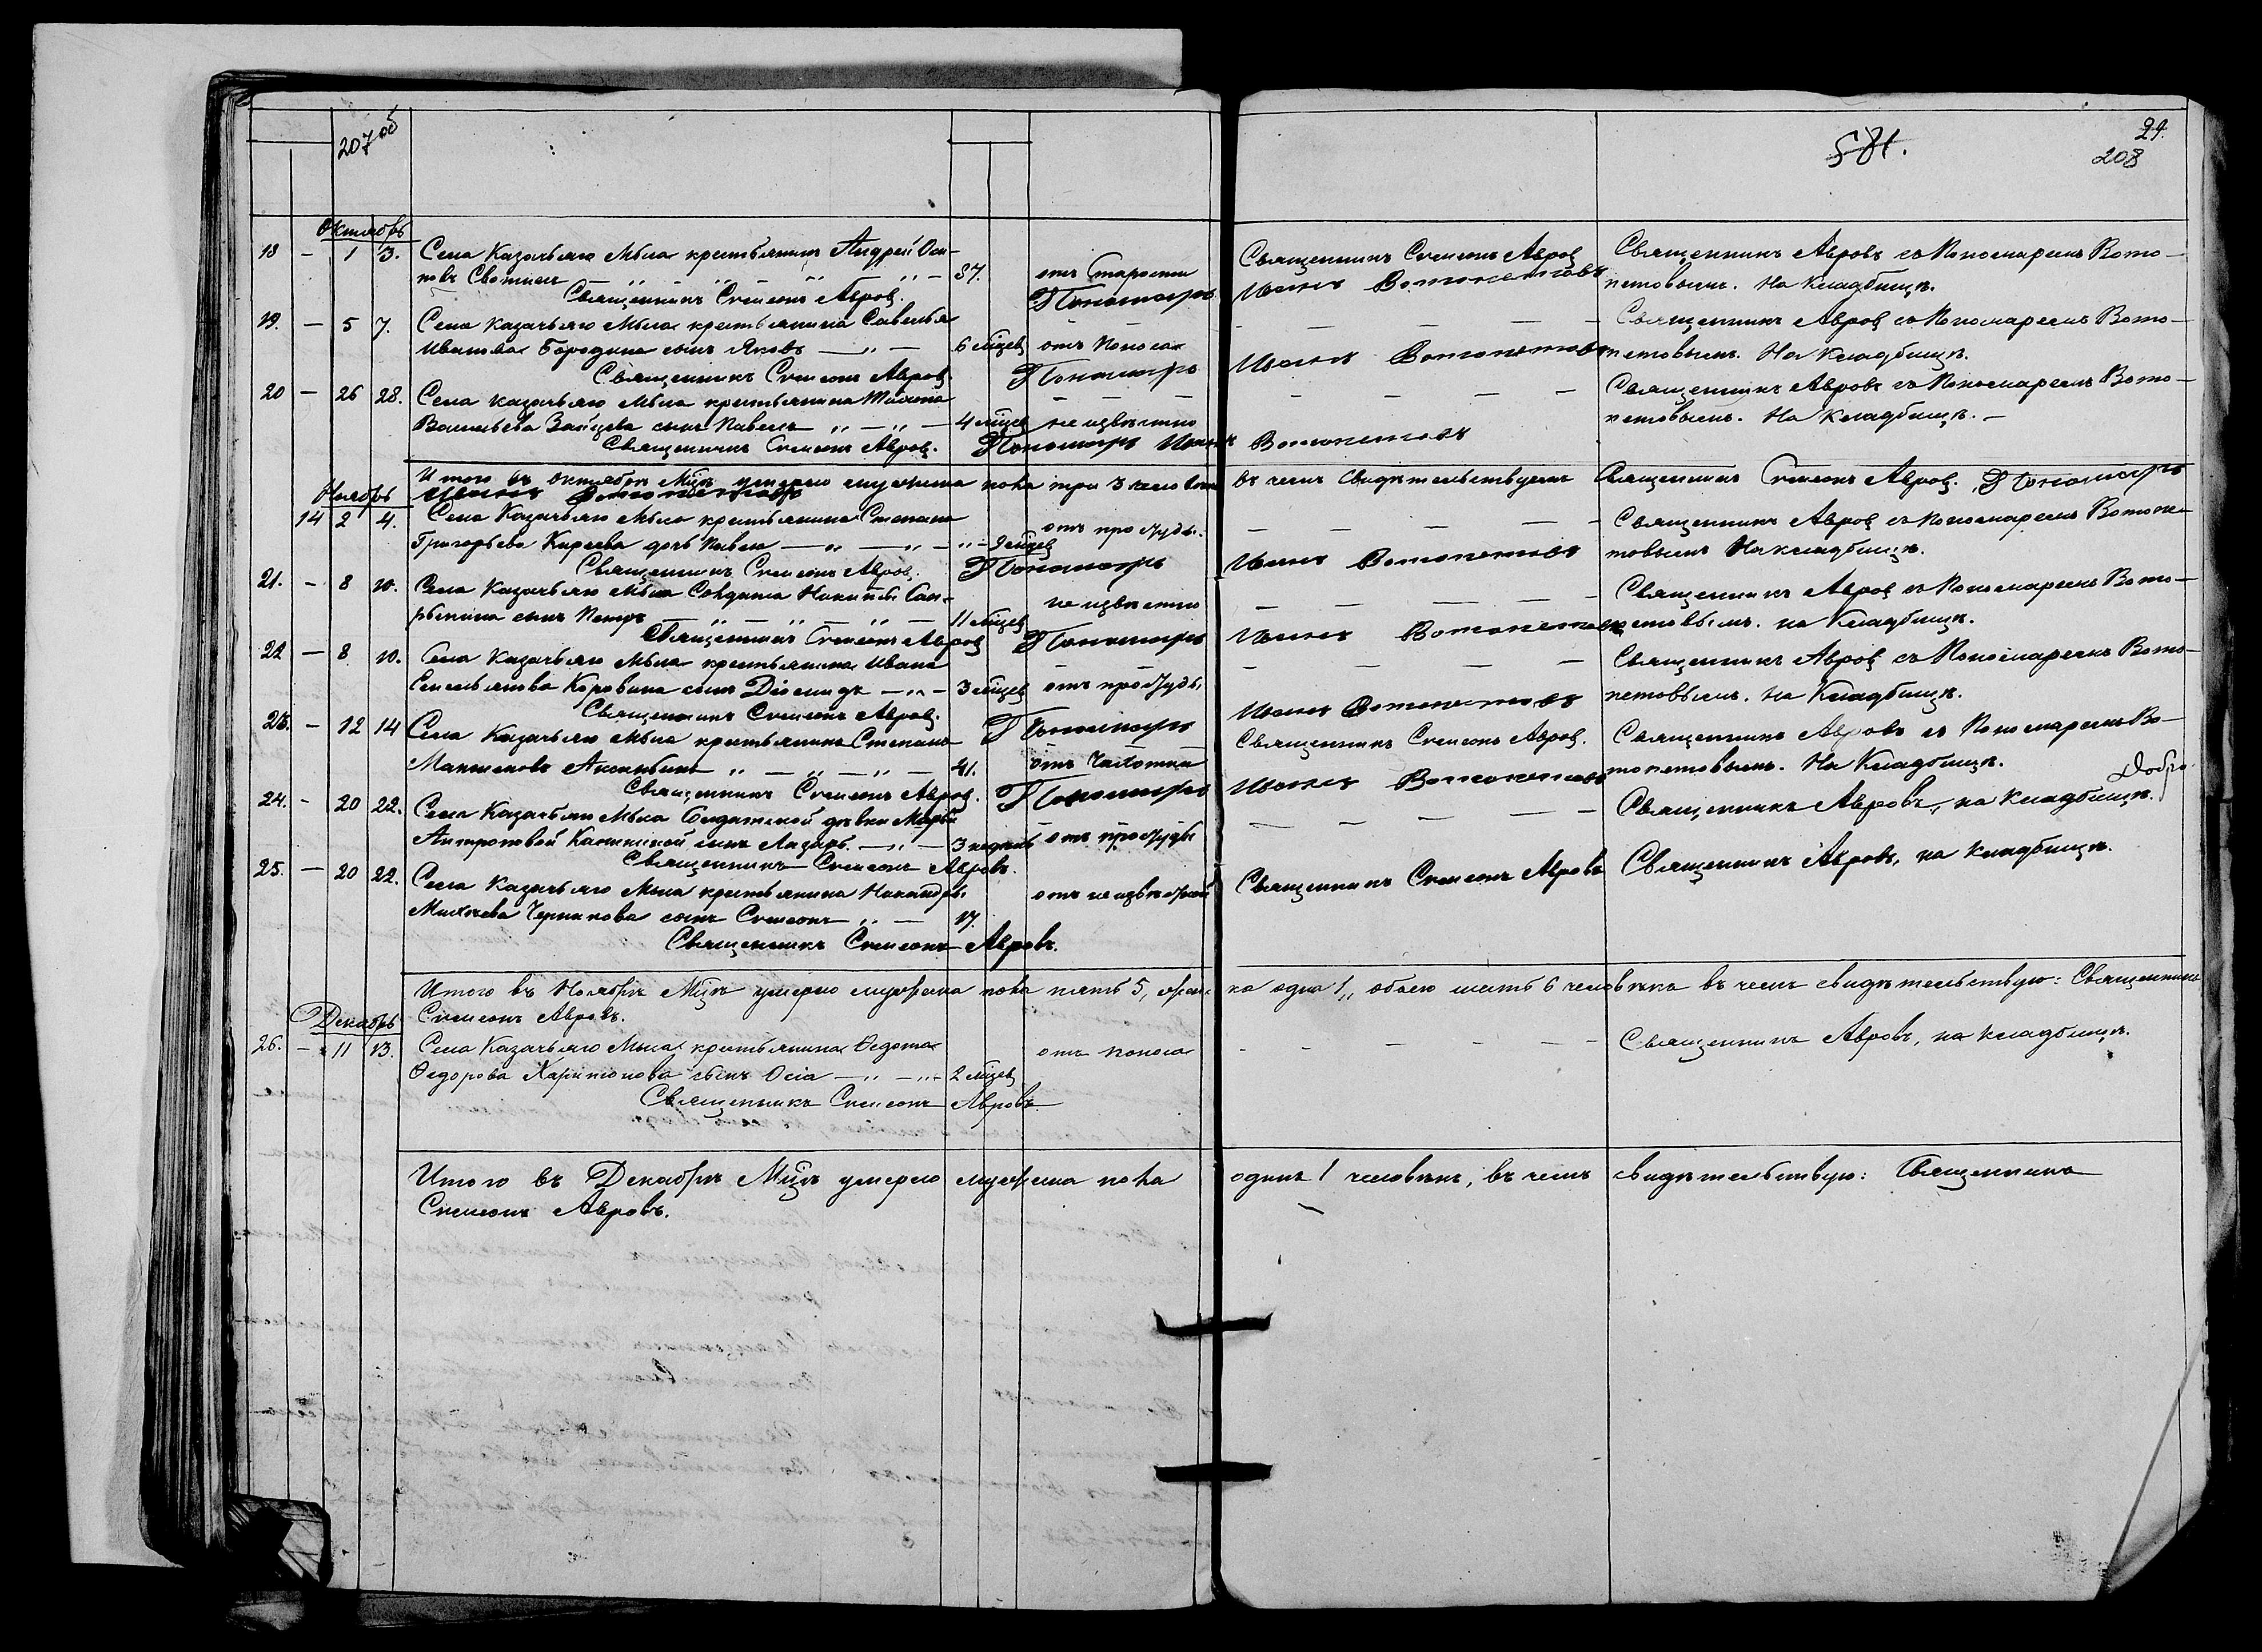 207 об
581.
24.
208
Октябрь
18 — 1 3. Села Казачьяго Мыса крестьянинъ Андрей Оси-
повъ
87. отъ старости
Священникъ Симеонъ Авровъ
Священникъ Авровъ съ Пономаремъ Вото-
петовымъ. На Кладбищѣ.
Священникъ Симеонъ Авровъ. Пономарь Иоаннъ Вотопетовъ
19. — 5 7. Села Казачьяго Мыса крестьянина Савелья
Иванова Бородина сынъ Яковъ — „ — 6 мѣцев отъ поноса
— — — — —
Священникъ Авровъ съ Пономаремъ Вото-
петовымъ. На Кладбищѣ.
Священникъ Симеонъ Авровъ. Пономарь Иоаннъ Вотопетовъ
20 — 26 28. Села Казачьяго Мыса крестьянина
Васильева Зайцева сынъ Павелъ „ — „ — 4 мѣцев не извѣстно
— — — —
Священникъ Авровъ съ Пономаремъ Вото-
петовымъ. На Кладбищѣ. —
Священникъ Симеонъ Авровъ. Пономарь Иоаннъ Вотопетовъ
Итого въ октябрѣ Мцѣ умерло мужеска пола три 3 въ чемъ свидѣтельствуемъ Священникъ Симеонъ Авровъ. Пономарь
Иоаннъ Вотопетовъ
Ноябрь
14 2 4. Села Казачьяго Мыса крестьянина Степана
Григорьева Киреева дочь — „ — „ — мѣцев отъ простуды.
— — — — —
Священникъ Авровъ съ Пономаремъ Вотопе-
товымъ На кладбищѣ.
Священникъ Симеонъ Авровъ. Пономарь Иоаннъ Вотопетовъ
21. — 8 10. Села Казачьяго Мыса Солдата
сынъ Петръ — „ — „ — 11 мѣцев не извѣстно
— — — — —
Священникъ Авровъ съ Пономаремъ Вото-
петовымъ. на Кладбищѣ.
Священникъ Симеонъ Авровъ Пономарь Иоаннъ Вотопетовъ
22 — 8 10. Села Казачьяго Мыса крестьянина Ивана
Емельянова Коровина сынъ Діомидъ — „ — 3 мѣцев отъ простуды
— — — — —
Священникъ Авровъ съ Пономаремъ Вото-
петовымъ. на Кладбищѣ.
Священникъ Симеонъ Авровъ. Пономарь Иоаннъ Вотопетовъ
23. — 12 14 Села Казачьяго Мыса крестьянинъ Степанъ
Максимовъ „ — „ — „ — 41. отъ чахотки
Священникъ Симеонъ Авровъ.
Священникъ Авровъ съ Пономаремъ Во-
топетовымъ. На Кладбищѣ.
Священникъ Симеонъ Авровъ. Пономарь Иоаннъ Вотопетовъ
24. — 20 22. Села Казачьяго Мыса Солдатской дѣвки Марьи
Антроповой сынъ Лазарь. — „ — 3 недѣль отъ простуды
— — — — —
Священникъ Авровъ, на кладбищѣ.
Священникъ Симеонъ Авровъ.
25. — 20 22. Села Казачьяго Мыса крестьянина Никандра
Черникова сынъ Симеонъ „ — 17.
Священникъ Симеонъ Авровъ
Священникъ Авровъ, на кладбищѣ.
Священникъ Симеонъ Авровъ.
Итого въ Ноябрѣ Мцѣ умерло мужеска пола пять 5, женска одна 1, обоего шесть 6 человѣка въ чемъ свидѣтельствую: Священникъ
Симеонъ Авровъ.
Декабрь
26. — 11 13. Села Казачьяго Мыса крестьянина Ѳедота
Ѳедорова Харитонова сынъ Осія — „ — „ — 2 мѣцев отъ поноса
— — — — —
Священникъ Авровъ, на кладбищѣ.
Священникъ Симеонъ Авровъ.
Итого въ Декабрѣ Мцѣ умерло мужеска пола одинъ 1 человѣкъ, въ чемъ свидѣтельствую: Священникъ
Симеонъ Авровъ.